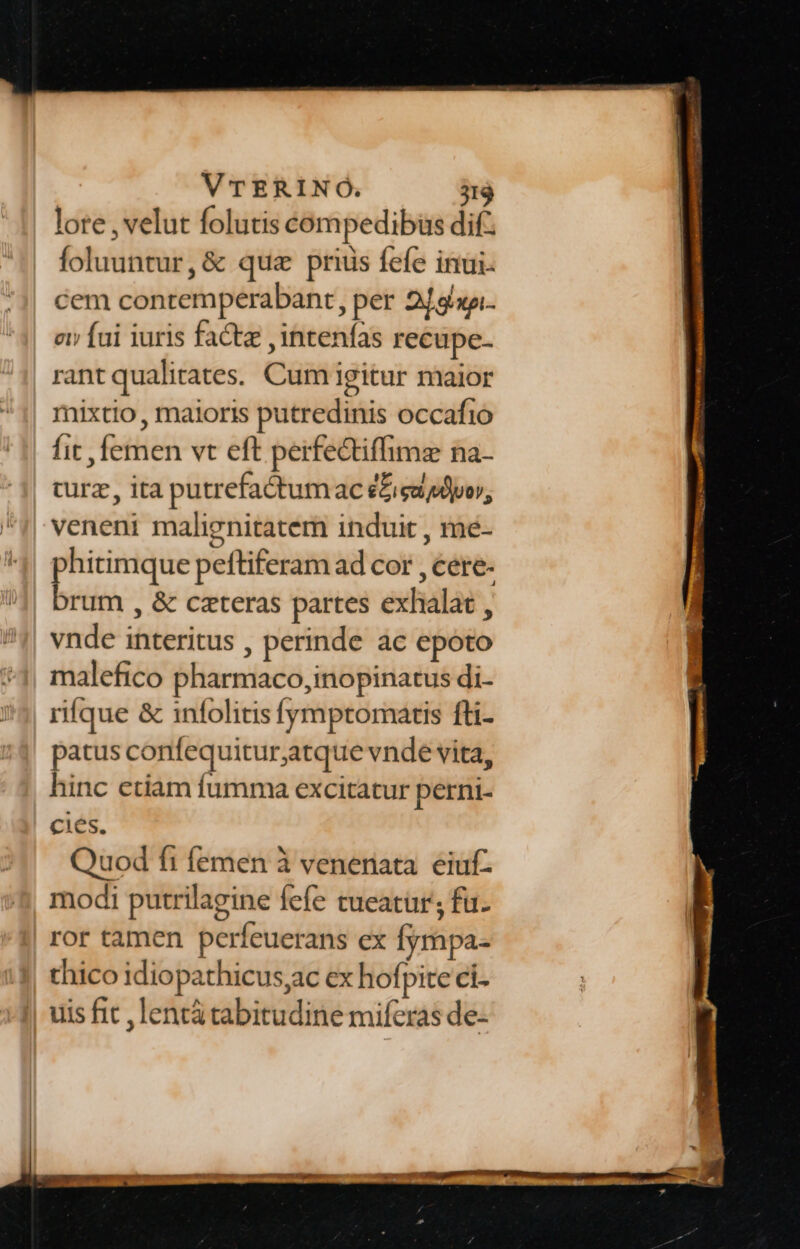 VTERINO. 319
lore, velut ſolutis compedibus diſ-
ſoluuntur, & quæ priùs ſeſe inui-
cem contemperabant, per
ſui iuris factæ, intenſas recupe-
rant qualitates. Cum igitur maior
mixtio, maioris putredinis occaſio
fit, ſemen vt eſt perfectiſſimæ na-
turæ, ita putrefactum ac
veneni malignitatem induit, me-
phitimque peſtiferam ad cor, cere-
brum, & cæteras partes exhalat,
vnde interitus, perinde ac epoto
malefico pharmaco, inopinatus di-
riſque & inſolitis ſymptomatis ſti-
patus conſequitur, atque vnde vita,
hinc etiam ſumma excitatur perni-
cies.
Quod ſi ſemen à venenata eiuſ-
modi putrilagine ſeſe tueatur, fu-
ror tamen perſeuerans ex ſympa-
thico idiopathicus, ac ex hoſpite ci-
uis fit, lentâ tabitudine miſeras de-